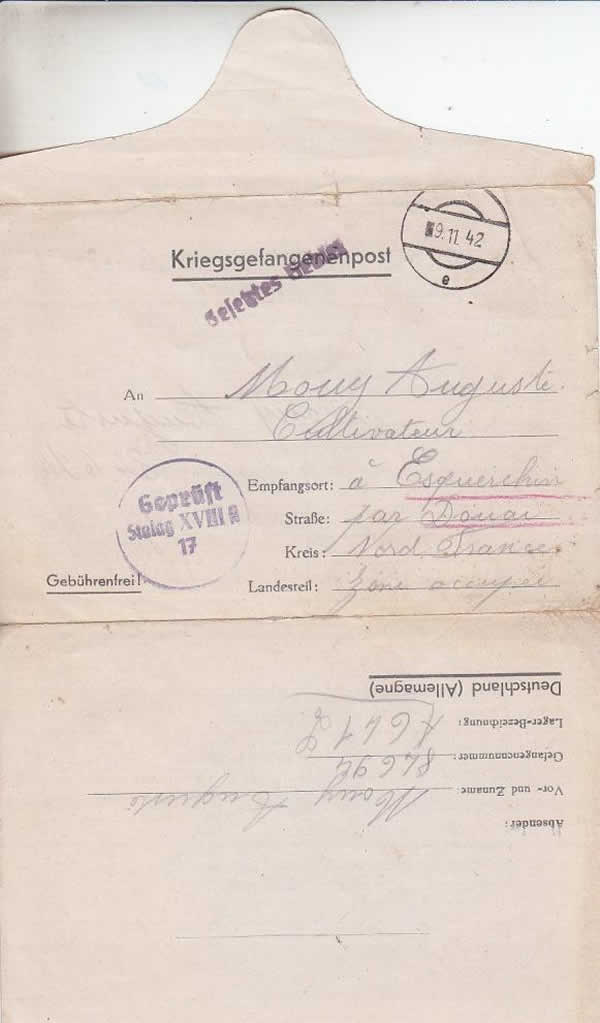 9.11.42
e
Kriegsgefangenenpost
Gelebtes Gebiet
An Mouy Auguste.
Cultivateur
Empfangsort: à Esquerchin
Straße: par Douai
Kreis: Nord France
Landesteil: Zone occupée
Geprüft
Stalag XVIII A
17
Gebührenfrei!
Absender:
Vor- und Zuname: Mouy Auguste
Gefangenennummer: 84694
Lager-Bezeichnung: A 641 L
Deutschland (Allemagne)